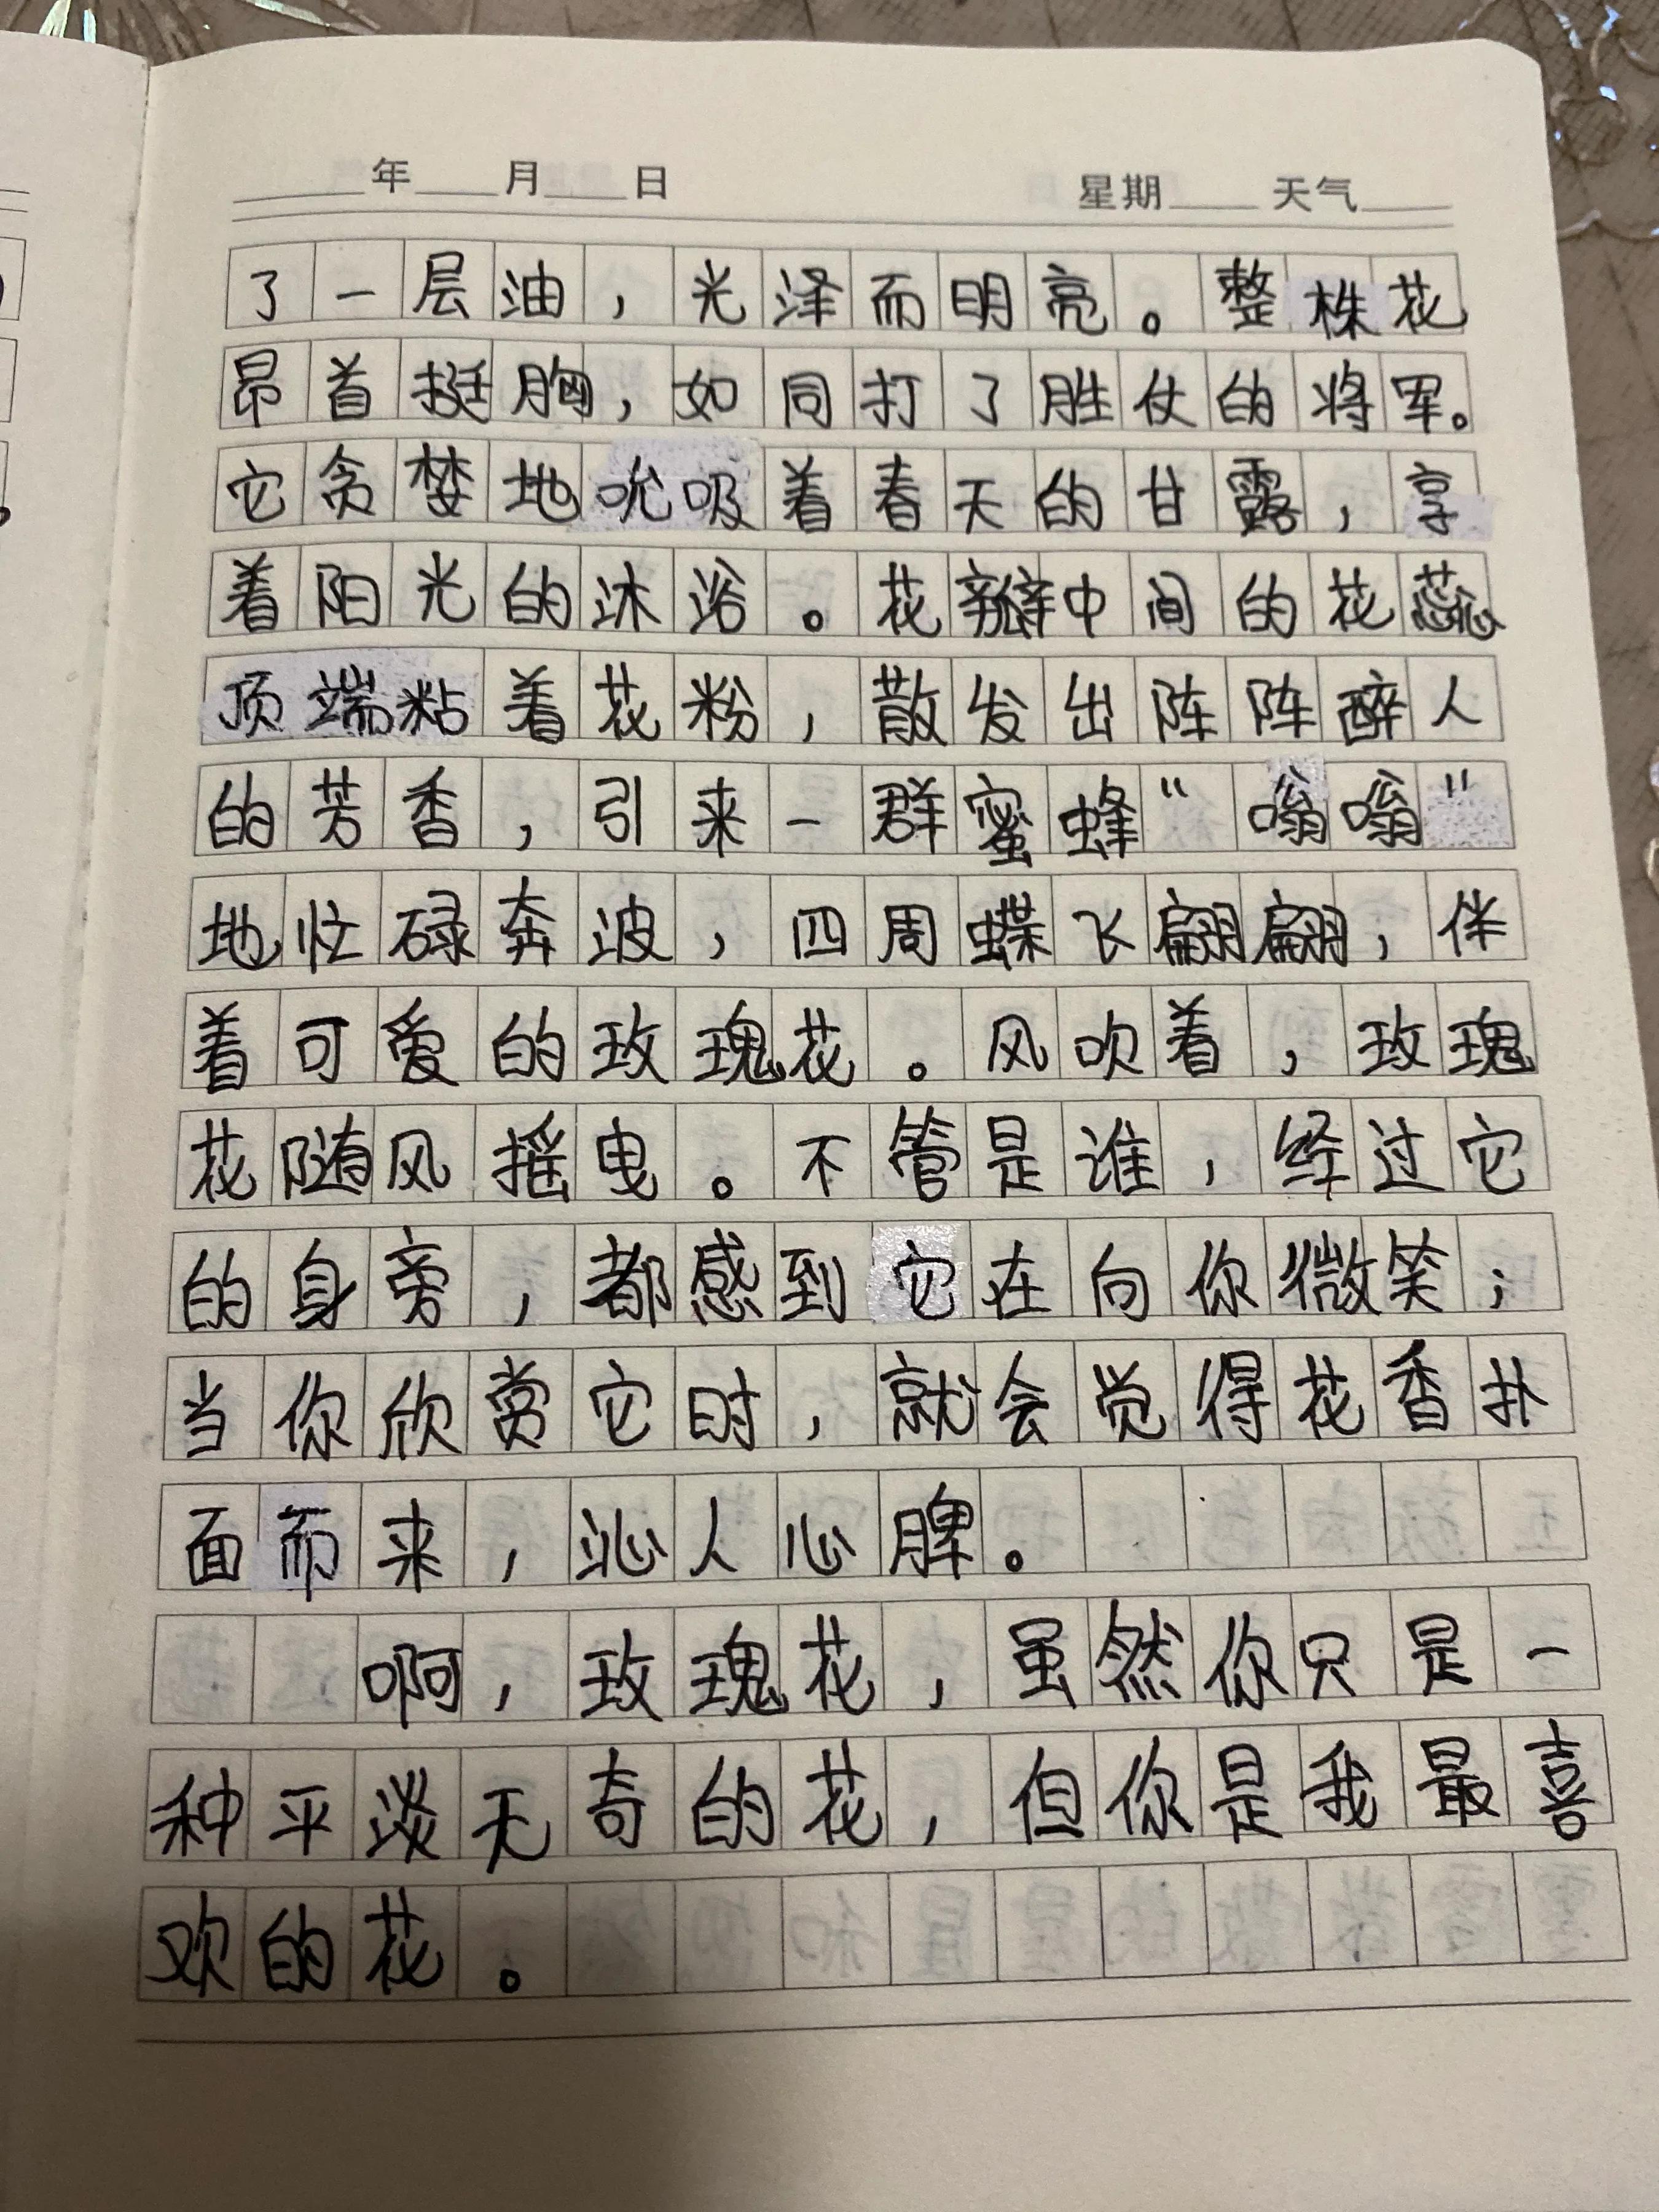 年 月 日 星期 天气
了一层油，光泽而明亮。整株花
昂首挺胸，如同打了胜仗的将军。
它贪婪地吮吸着春天的甘露，享
着阳光的沐浴。花瓣中间的花蕊
顶端粘着花粉，散发出阵阵醉人
的芳香，引来一群蜜蜂“嗡嗡”
地忙碌奔波，四周蝶飞翩翩，伴
着可爱的玫瑰花。风吹着，玫瑰
花随风摇曳。不管是谁，经过它
的身旁，都感到它在向你微笑；
当你欣赏它时，就会觉得花香扑
面而来，沁人心脾。
啊，玫瑰花，虽然你只是一
种平淡无奇的花，但你是我最喜
欢的花。